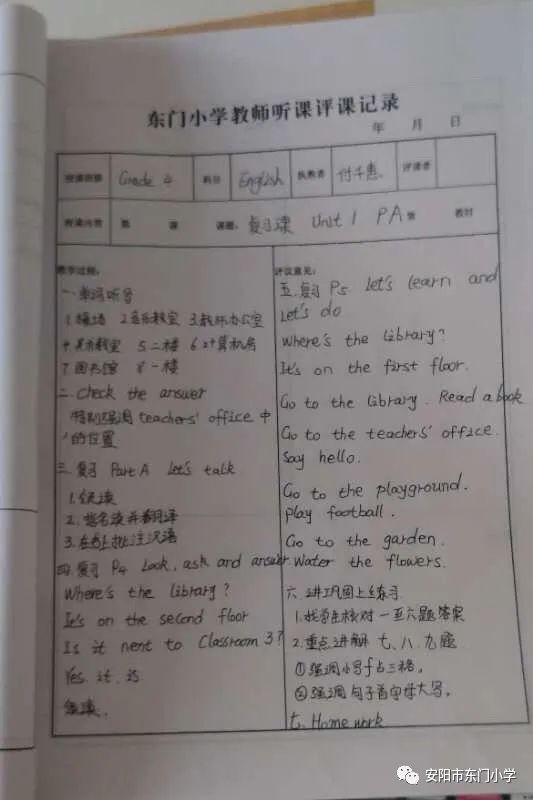 东门小学教师听课评课记录
年 月 日
授课班级 Grade 4 科目 English 执教者 付千惠 评课者
授课内容 第 课 课题: 复习课 Unit 1 PA 第 教时
教学过程:
一.单词听写
1.操场 2.音乐教室 3.教师办公室
4.美术教室 5.二楼 6.计算机房
7.图书馆 8.一楼
二. Check the answer
特别强调 teachers' office 中
'的位置
三. 复习 Part A Let's talk
1.领读
2.指名读并翻译
3.在书上批注汉语
四.复习 P4 Look, ask and answer.
Where's the library?
It's on the second floor
Is it nent to Classroom 3?
Yes. it. is
领读.
评议意见:
五.复习 P5 let's learn and
Let's do
Where's the library?
It's on the first floor.
Go to the library. Read a book
Go to the teachers' office.
Say hello.
Go to the playground.
Play football.
Go to the garden.
Water the flowers.
六.讲巩固上练习.
1.找学生核对一至六题答案
2.重点讲解 七、八、九题
①强调小写f占三格。
②强调句子首字母大写。
七. Home work
安阳市东门小学